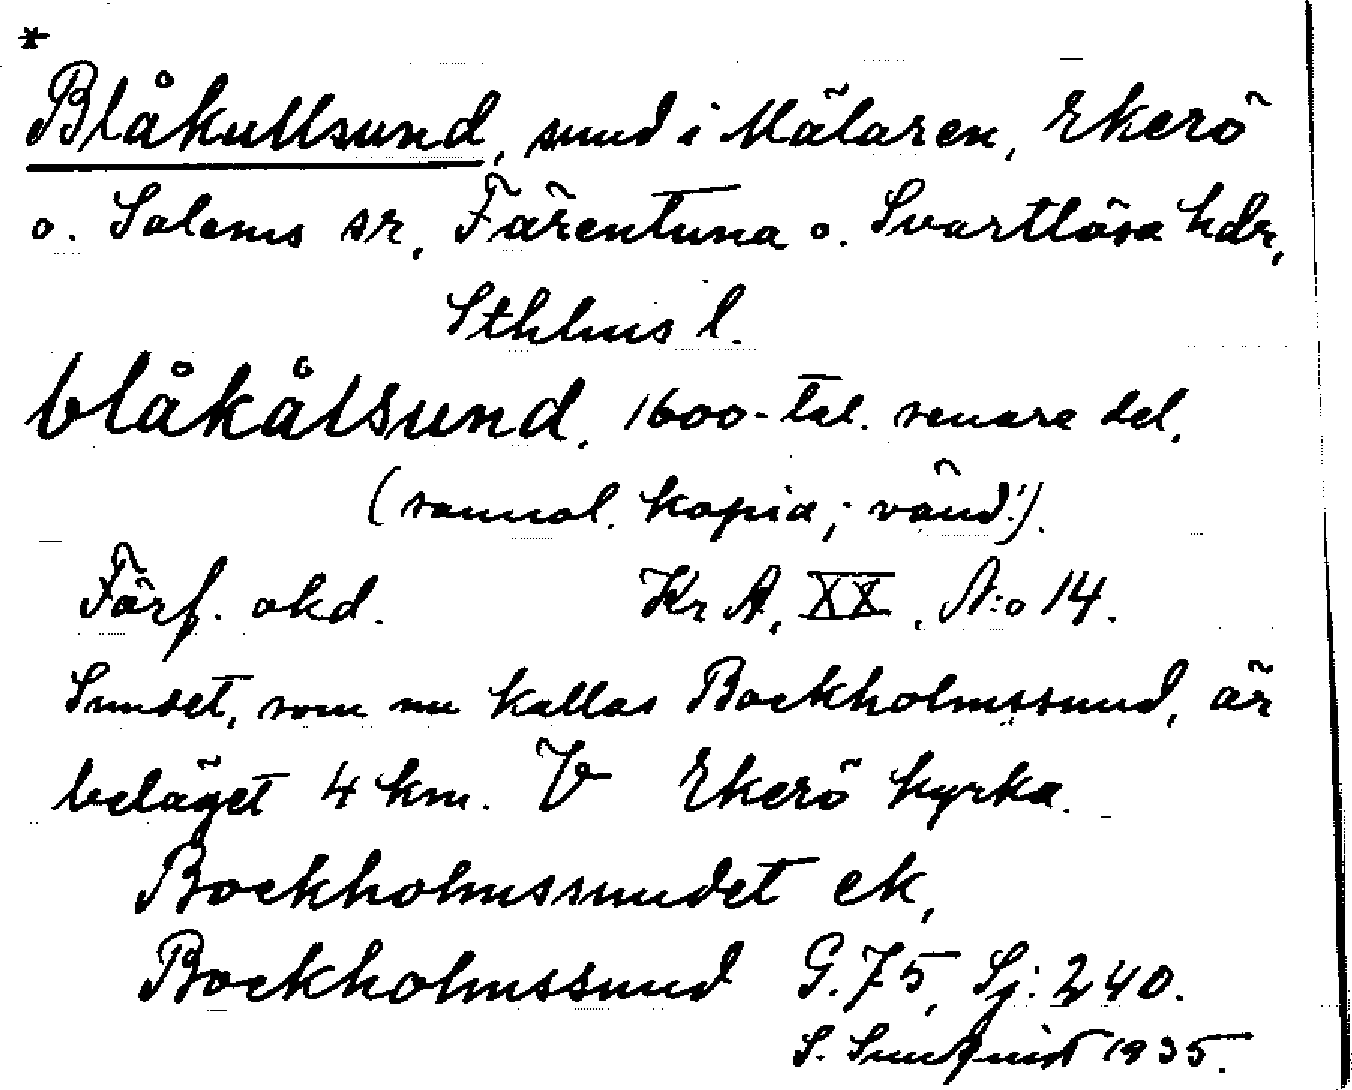 *
Blåkullsund, sund i Mälaren, Ekerö
o. Salems sr, Färentuna o. Svartlösa hdr,
Sthlms l.
blåkålsund. 1600-tal. senare del.
(sannol. kopia; vänd!).
Förf. okd. Kr A, XX, N:o 14.
Sundet, som nu kallas Bockholmssund, är
beläget 4 km. V Ekerö kyrka.
Bockholmssundet ek,
Bockholmssund G. 75, Sj: 240.
S. Sundqvist 1935.